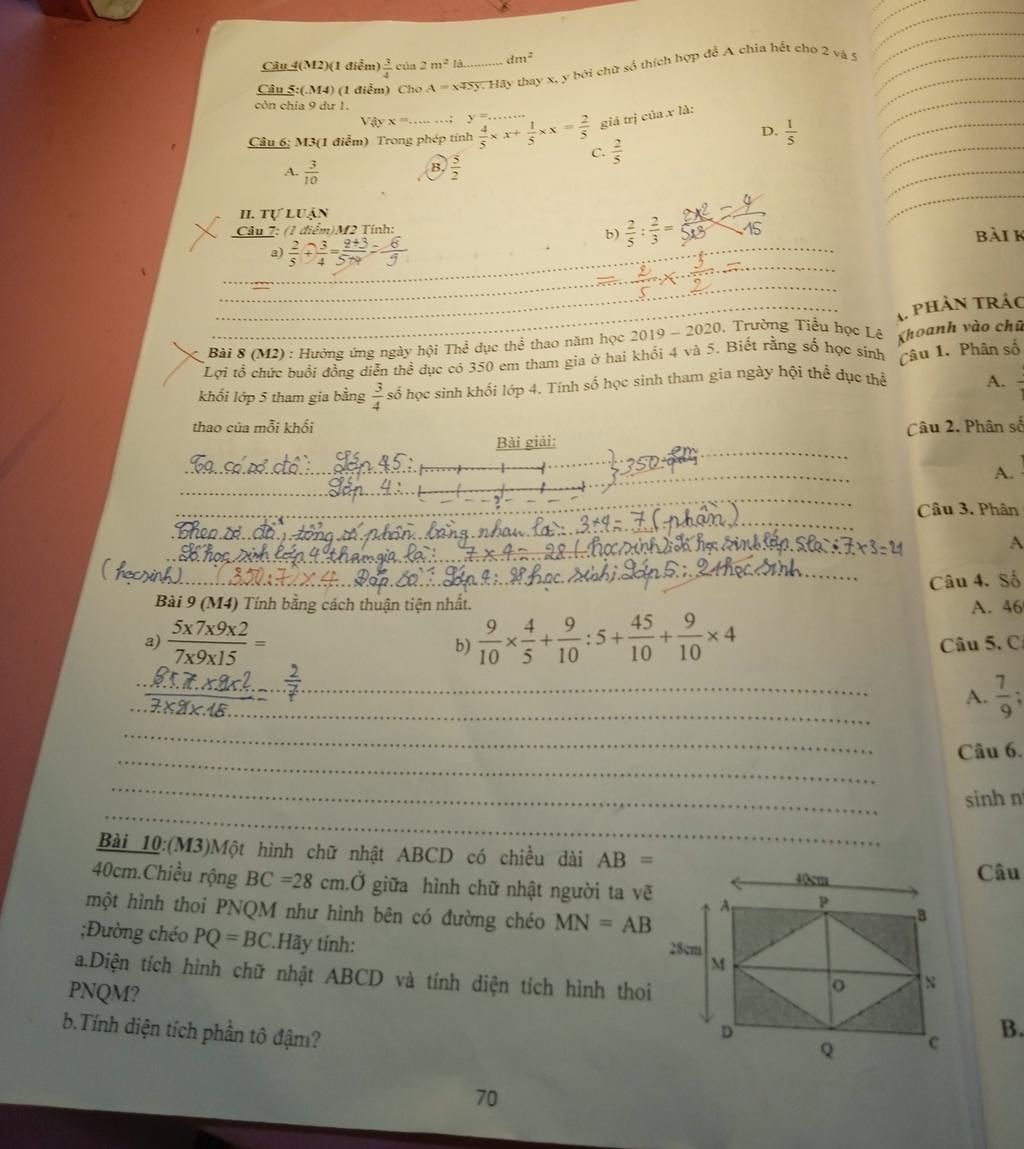 Câu 4(M2)(1 điểm) 3/4 của 2 m² là........... dm²
Câu 5:(.M4) (1 điểm) Cho A = x45y. Hãy thay x, y bởi chữ số thích hợp để A chia hết cho 2 và 5
còn chia 9 dư 1.
Vậy x =...... ...; y =........
Câu 6: M3(1 điểm) Trong phép tính 4/5 × x + 1/5 × x = 2/5 giá trị của x là:
A. 3/10 B. 5/2 C. 2/5 D. 1/5
II. TỰ LUẬN
Câu 7: (1 điểm)M2 Tính:
a) 2/5 + 3/4 = 2+3/5+4 = 6/9 b) 2/5 : 2/3 = 2×2/5×3 = 4/15
= = 2/5 × 3/2 =
Bài 8 (M2) : Hưởng ứng ngày hội Thể dục thể thao năm học 2019 – 2020. Trường Tiểu học Lê
Lợi tổ chức buổi đồng diễn thể dục có 350 em tham gia ở hai khối 4 và 5. Biết rằng số học sinh
khối lớp 5 tham gia bằng 3/4 số học sinh khối lớp 4. Tính số học sinh tham gia ngày hội thể dục thể
thao của mỗi khối
Bài giải:
Ta có sơ đồ: Lớp 5: 350 em
Lớp 4:
?
Theo sơ đồ, tổng số phần bằng nhau là: 3+4=7 (phần)
Số học sinh lớp 4 tham gia là: 7 x 4 = 28 (học sinh) Số học sinh lớp 5 là: 7×3=21
(học sinh) (350:7) × 4 Đáp số: Lớp 4: 28 học sinh; Lớp 5: 21 học sinh
Bài 9 (M4) Tính bằng cách thuận tiện nhất.
a) 5x7x9x2/7x9x15 = b) 9/10 × 4/5 + 9/10 : 5 + 45/10 + 9/10 × 4
5×7×9×2/7×9×15 = 2/7
Bài 10:(M3)Một hình chữ nhật ABCD có chiều dài AB =
40cm.Chiều rộng BC =28 cm.Ở giữa hình chữ nhật người ta vẽ
một hình thoi PNQM như hình bên có đường chéo MN = AB
;Đường chéo PQ = BC.Hãy tính:
a.Diện tích hình chữ nhật ABCD và tính diện tích hình thoi
PNQM?
b.Tính diện tích phần tô đậm?
40cm
A P B
28cm
M O N
D Q C
70
BÀI K
A. PHẦN TRẮC
Khoanh vào chữ
Câu 1. Phân số
A.
Câu 2. Phân số
A.
Câu 3. Phân
A
Câu 4. Số
A. 46
Câu 5. C
A. 7/9 ;
Câu 6.
sinh n
Câu
B.